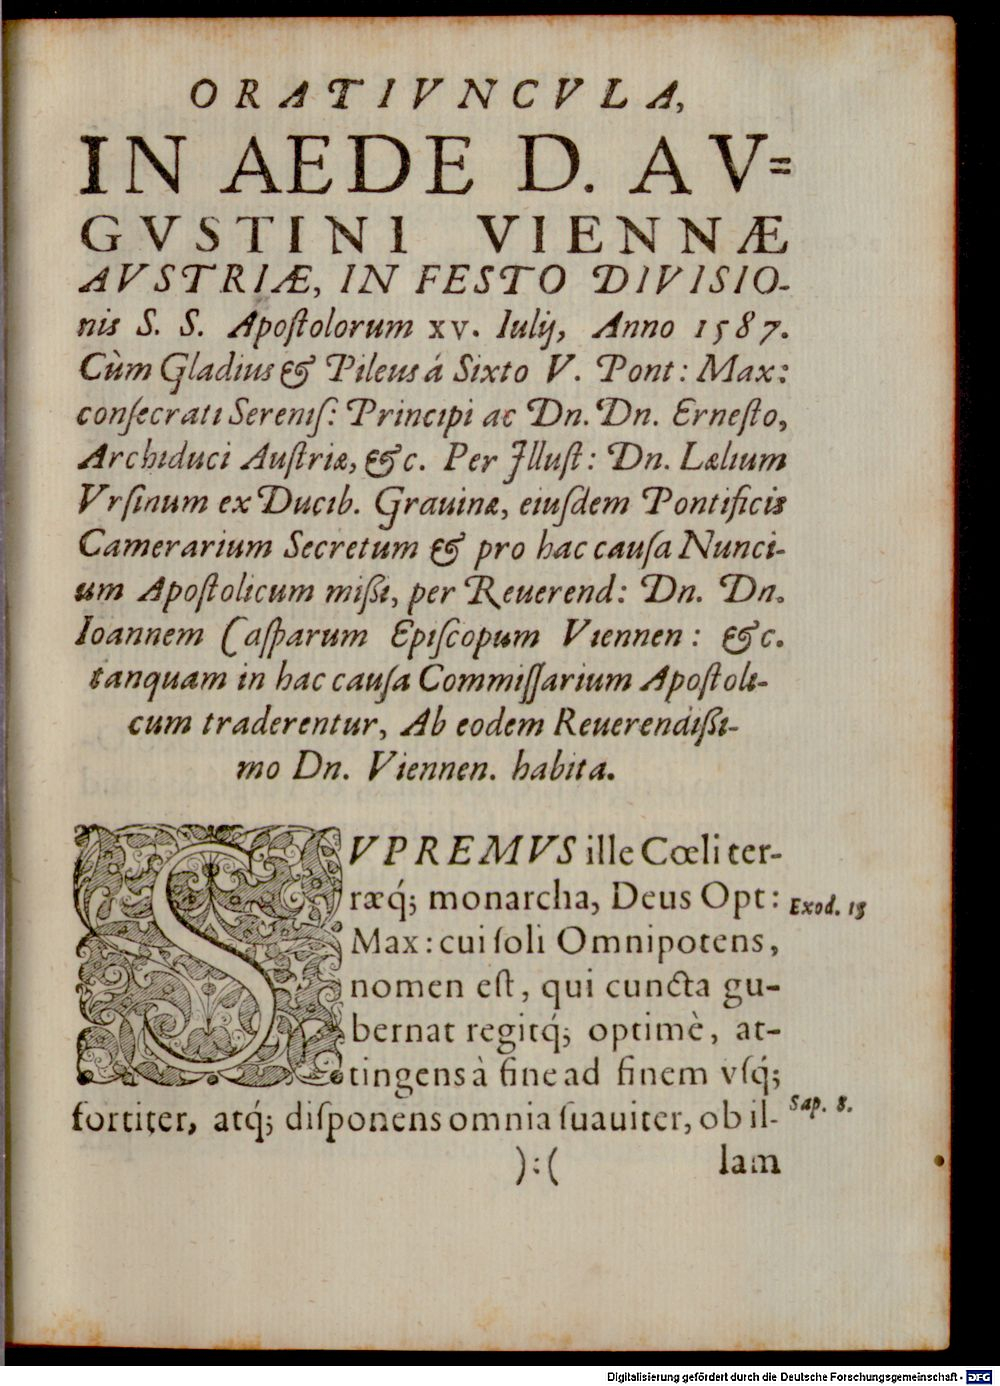 ORATIVNCVLA,
IN AEDE D. AV=
GVSTINI VIENNÆ
AVSTRIÆ, IN FESTO DIVISIO-
nis S. S. Apoſtolorum xv. Iulij, Anno 1587.
Cùm Gladius & Pileus á Sixto V. Pont: Max:
conſecrati Sereniſ: Principi ac Dn. Dn. Erneſto,
Archiduci Auſtriæ, &c. Per Jlluſt: Dn. Lælium
Vrſinum ex Ducib. Grauinæ, eiuſdem Pontificis
Camerarium Secretum & pro hac cauſa Nunci-
um Apoſtolicum mißi, per Reuerend: Dn. Dn.
Ioannem Caſparum Epiſcopum Viennen: &c.
tanquam in hac cauſa Commiſſarium Apoſtoli-
cum traderentur, Ab eodem Reuerendißi-
mo Dn. Viennen. habita.
SVPREMVS ille Cœli ter-
ræq́; monarcha, Deus Opt:
Exod. 15
Max: cui ſoli Omnipotens,
nomen eſt, qui cuncta gu-
bernat regitq́; optimè, at-
tingens à fine ad finem vſq́;
fortiter, atq́; diſponens omnia ſuauiter, ob il-
Sap. 8.
):( lam
Digitalisierung gefördert durch die Deutsche Forschungsgemeinschaft - DFG